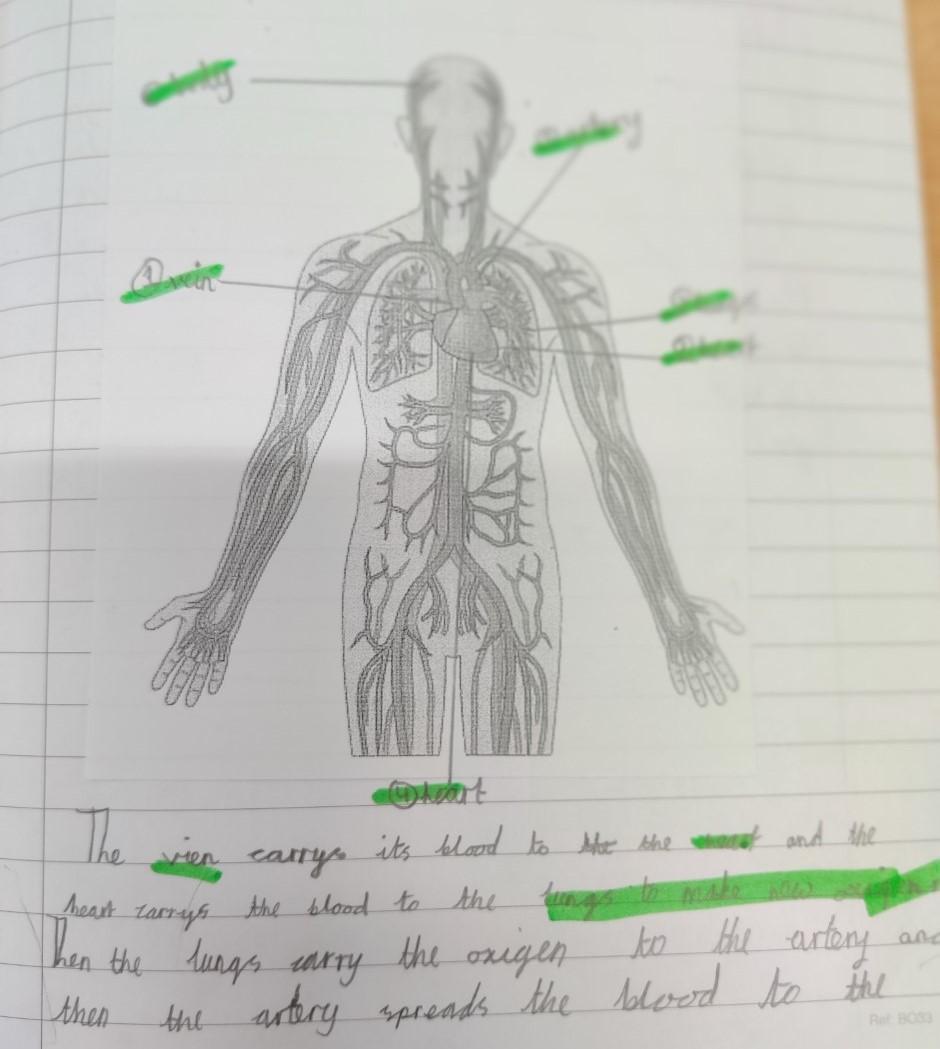 body
artery
① vein
lungs
heart
④ heart
The vien carrys its blood to the the heart and the
heart carrys the blood to the lungs to make new oxigen
Then the lungs carry the oxigen to the artery and
then the artery spreads the blood to the
Ref: BO33